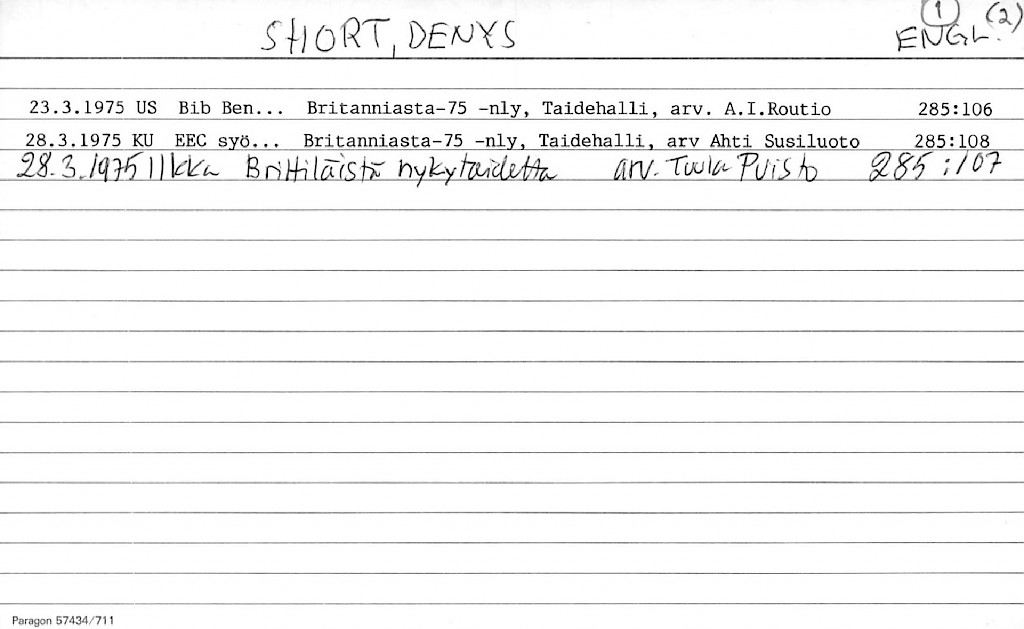 SHORT, DENYS
① (2)
ENGL.
23.3.1975 US Bib Ben... Britanniasta-75 -nly, Taidehalli, arv. A.I.Routio 285:106
28.3.1975 KU EEC syö... Britanniasta-75 -nly, Taidehalli, arv Ahti Susiluoto 285:108
28.3.1975 Ilkka Brittiläistä nykytaidetta arv. Tuula Puisto 285:107
Paragon 57434/711